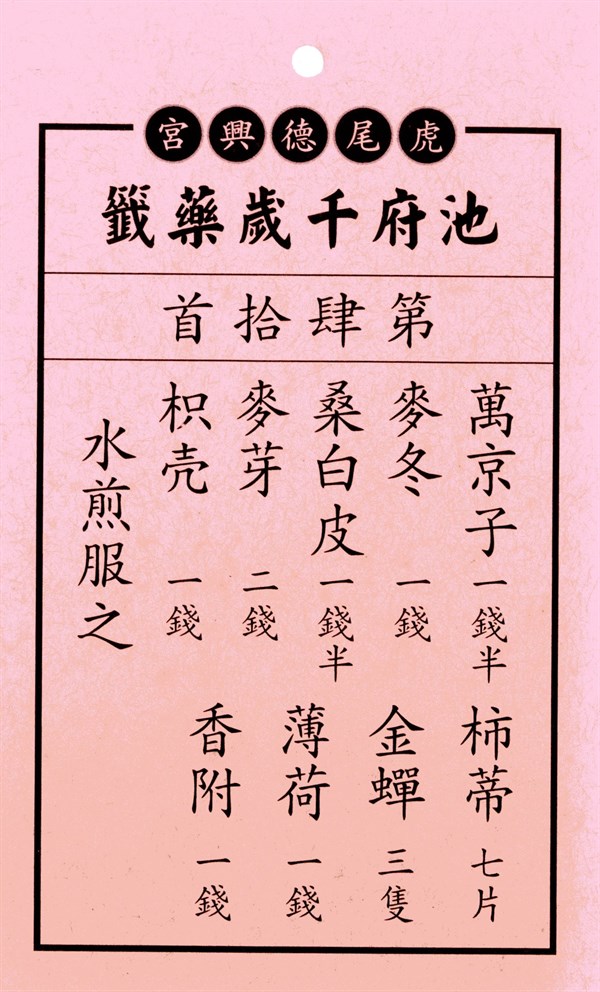 虎尾德興宮
池府千歲藥籤
第肆拾首
萬京子 一錢半
麥冬 一錢
桑白皮 一錢半
麥芽 二錢
枳壳 一錢
水煎服之
柿蒂 七片
金蟬 三隻
薄荷 一錢
香附 一錢